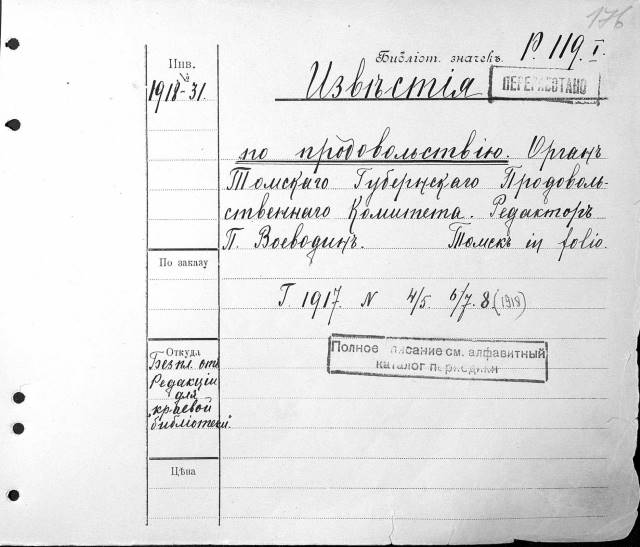 176
Инв.
№
1918-31.
Библіот. значекъ.
Р. 119. I.
Извѣстія
ПЕРЕРАБОТАНО
по продовольствію. Органъ
Томскаго Губернскаго Продоволь-
ственнаго Комитета. Редакторъ
П. Воеводинъ. Томскъ in folio.
По заказу
Г. 1917. N 4/5. 6/7. 8. (1918)
Полное описание см. алфавитный
каталог периодики
Откуда
Безпл. отъ
Редакціи
для
краевой
библіотеки.
Цѣна